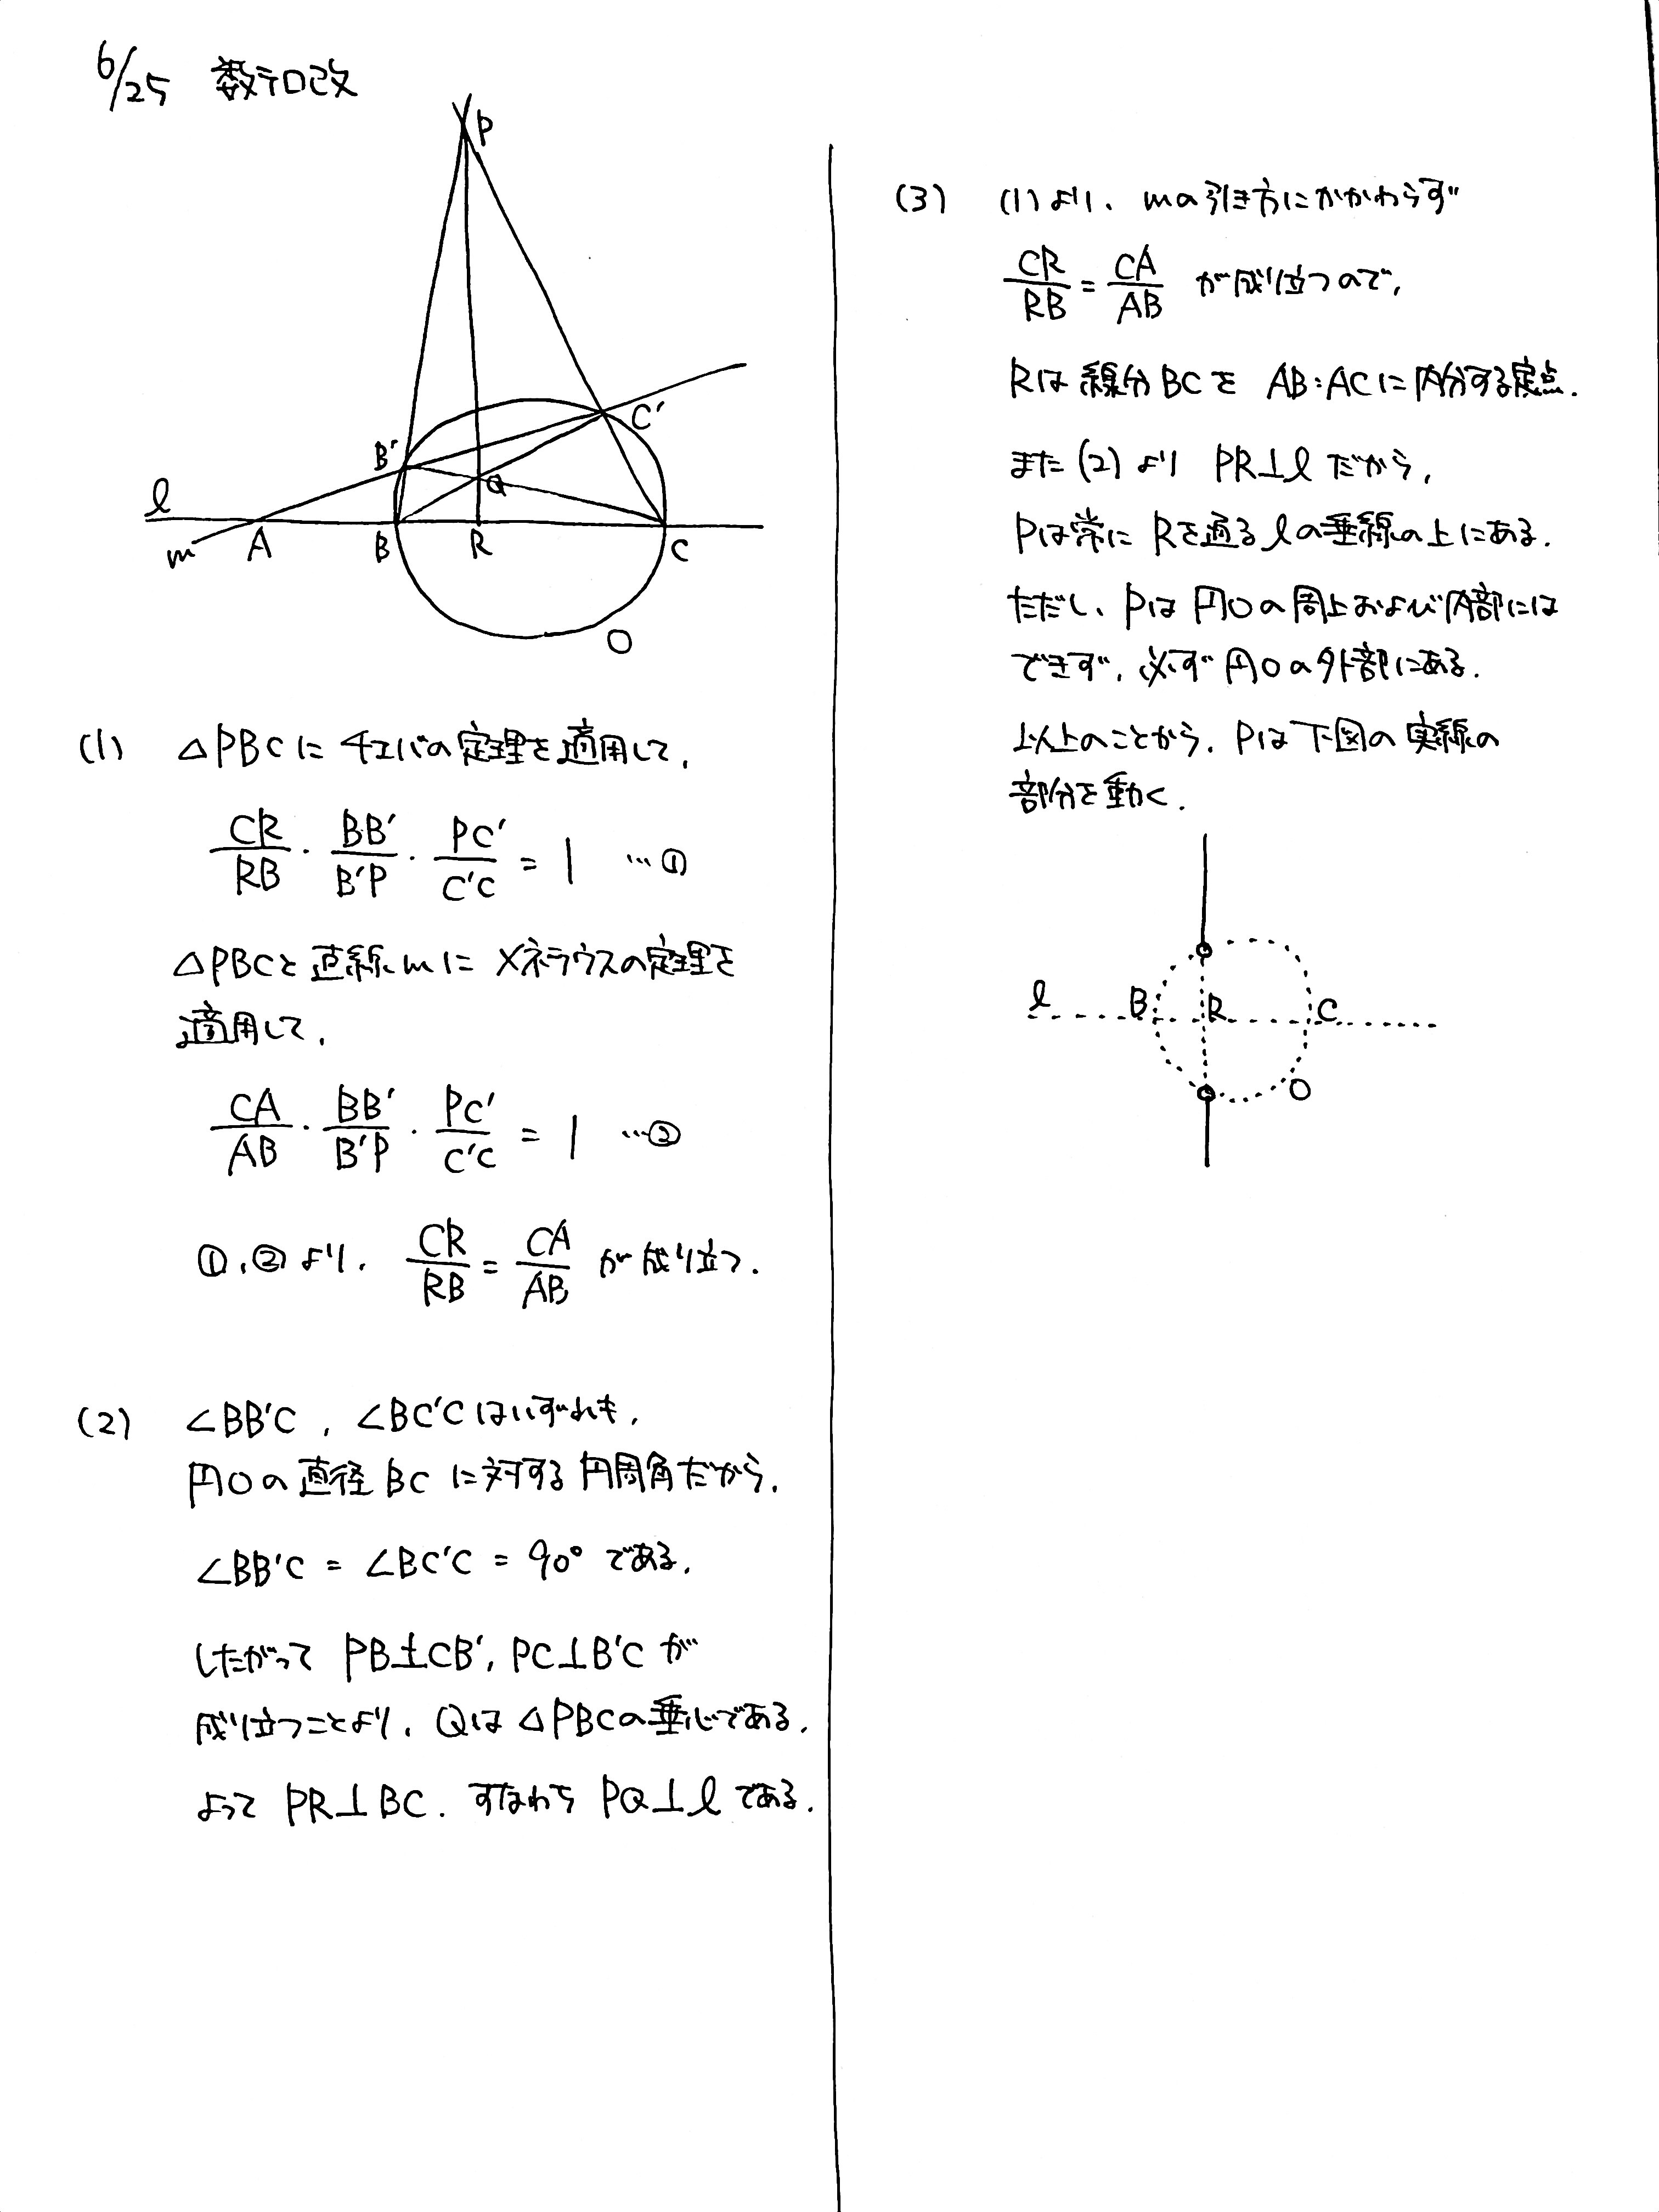 6/25 数テロ改
P
C'
B'
Q
l
m
A
B
R
C
O
(1) △PBCにチェバの定理を適用して,
CR/RB · BB'/B'P · PC'/C'C = 1 …①
△PBCと直線mにメネラウスの定理を
適用して,
CA/AB · BB'/B'P · PC'/C'C = 1 …②
①,②より, CR/RB = CA/AB が成り立つ.
(2) ∠BB'C , ∠BC'Cはいずれも,
円Oの直径BCに対する円周角だから,
∠BB'C = ∠BC'C = 90° である.
したがって PB⊥CB', PC⊥B'C が
成り立つことより, Qは△PBCの垂心である.
よって PR⊥BC. すなわち PQ⊥l である.
(3) (1)より, mの引き方にかかわらず
CR/RB = CA/AB が成り立つので,
Rは線分BCを AB:ACに内分する定点.
また(2)より PR⊥lだから,
Pは常に Rを通るlの垂線の上にある.
ただし, Pは円Oの周上および内部には
できず, 必ず円Oの外部にある.
以上のことから, Pは下図の実線の
部分を動く.
l
B
R
C
O